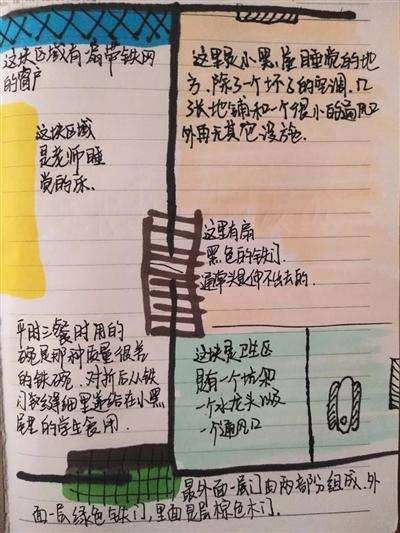 这块区域有扇带铁网
的窗户
这块区域
是老师睡
觉的床.
这里是小黑屋睡觉的地
方,除了一个坏了的空调,几
张地铺和一个很小的通风口
外再无其他设施.
这里有扇
黑色的铁门.
通常头是伸不出去的.
平时三餐时用的
碗是那种质量很差
的铁碗.对折后从铁
门缝细里递给在小黑
屋里的学生食用.
这块是卫生区
只有一个坑
一个水龙头以及
一个通风口
最外面一层门由两部分组成.外
面一层绿色铁门,里面是层棕色木门.